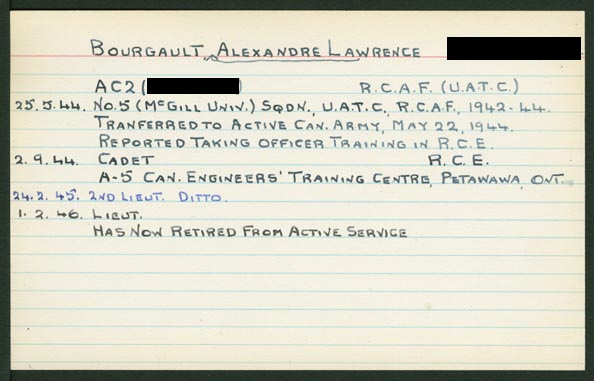 BOURGAULT, ALEXANDRE LAWRENCE
AC2 ( ) R.C.A.F. (U.A.T.C.)
25.5.44. NO.5 (McGILL UNIV.) SQDN., U.A.T.C., R.C.A.F., 1942-44.
TRANFERRED TO ACTIVE CAN. ARMY, MAY 22, 1944.
REPORTED TAKING OFFICER TRAINING IN R.C.E.
2.9.44. CADET R.C.E.
A-5 CAN. ENGINEERS' TRAINING CENTRE, PETAWAWA, ONT.
24.2.45. 2ND LIEUT. DITTO.
1.2.46. LIEUT.
HAS NOW RETIRED FROM ACTIVE SERVICE